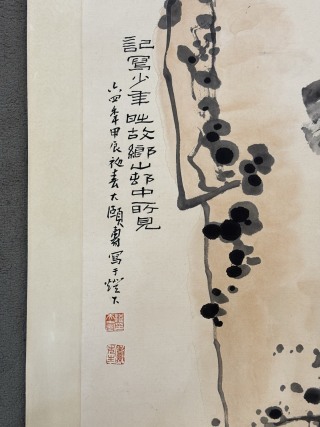 記寫少年時故鄉山邨中所見
六四年甲辰初春大頤壽寫于燈下